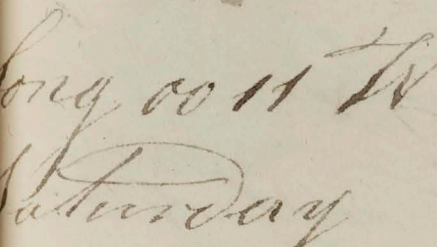 Long 00 11 W
Saturday